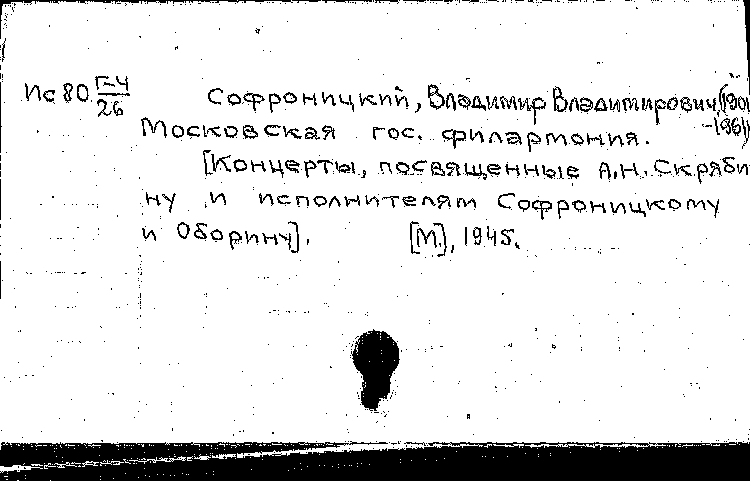 Ис 80 Г-4/26 Софроницкий, Владимир Владимирович (1901
Московская гос. филармония. -1961)
[Концерты, посвященные А.Н. Скряби
ну и исполнителям Софроницкому
и Оборину]. [М.], 1945.